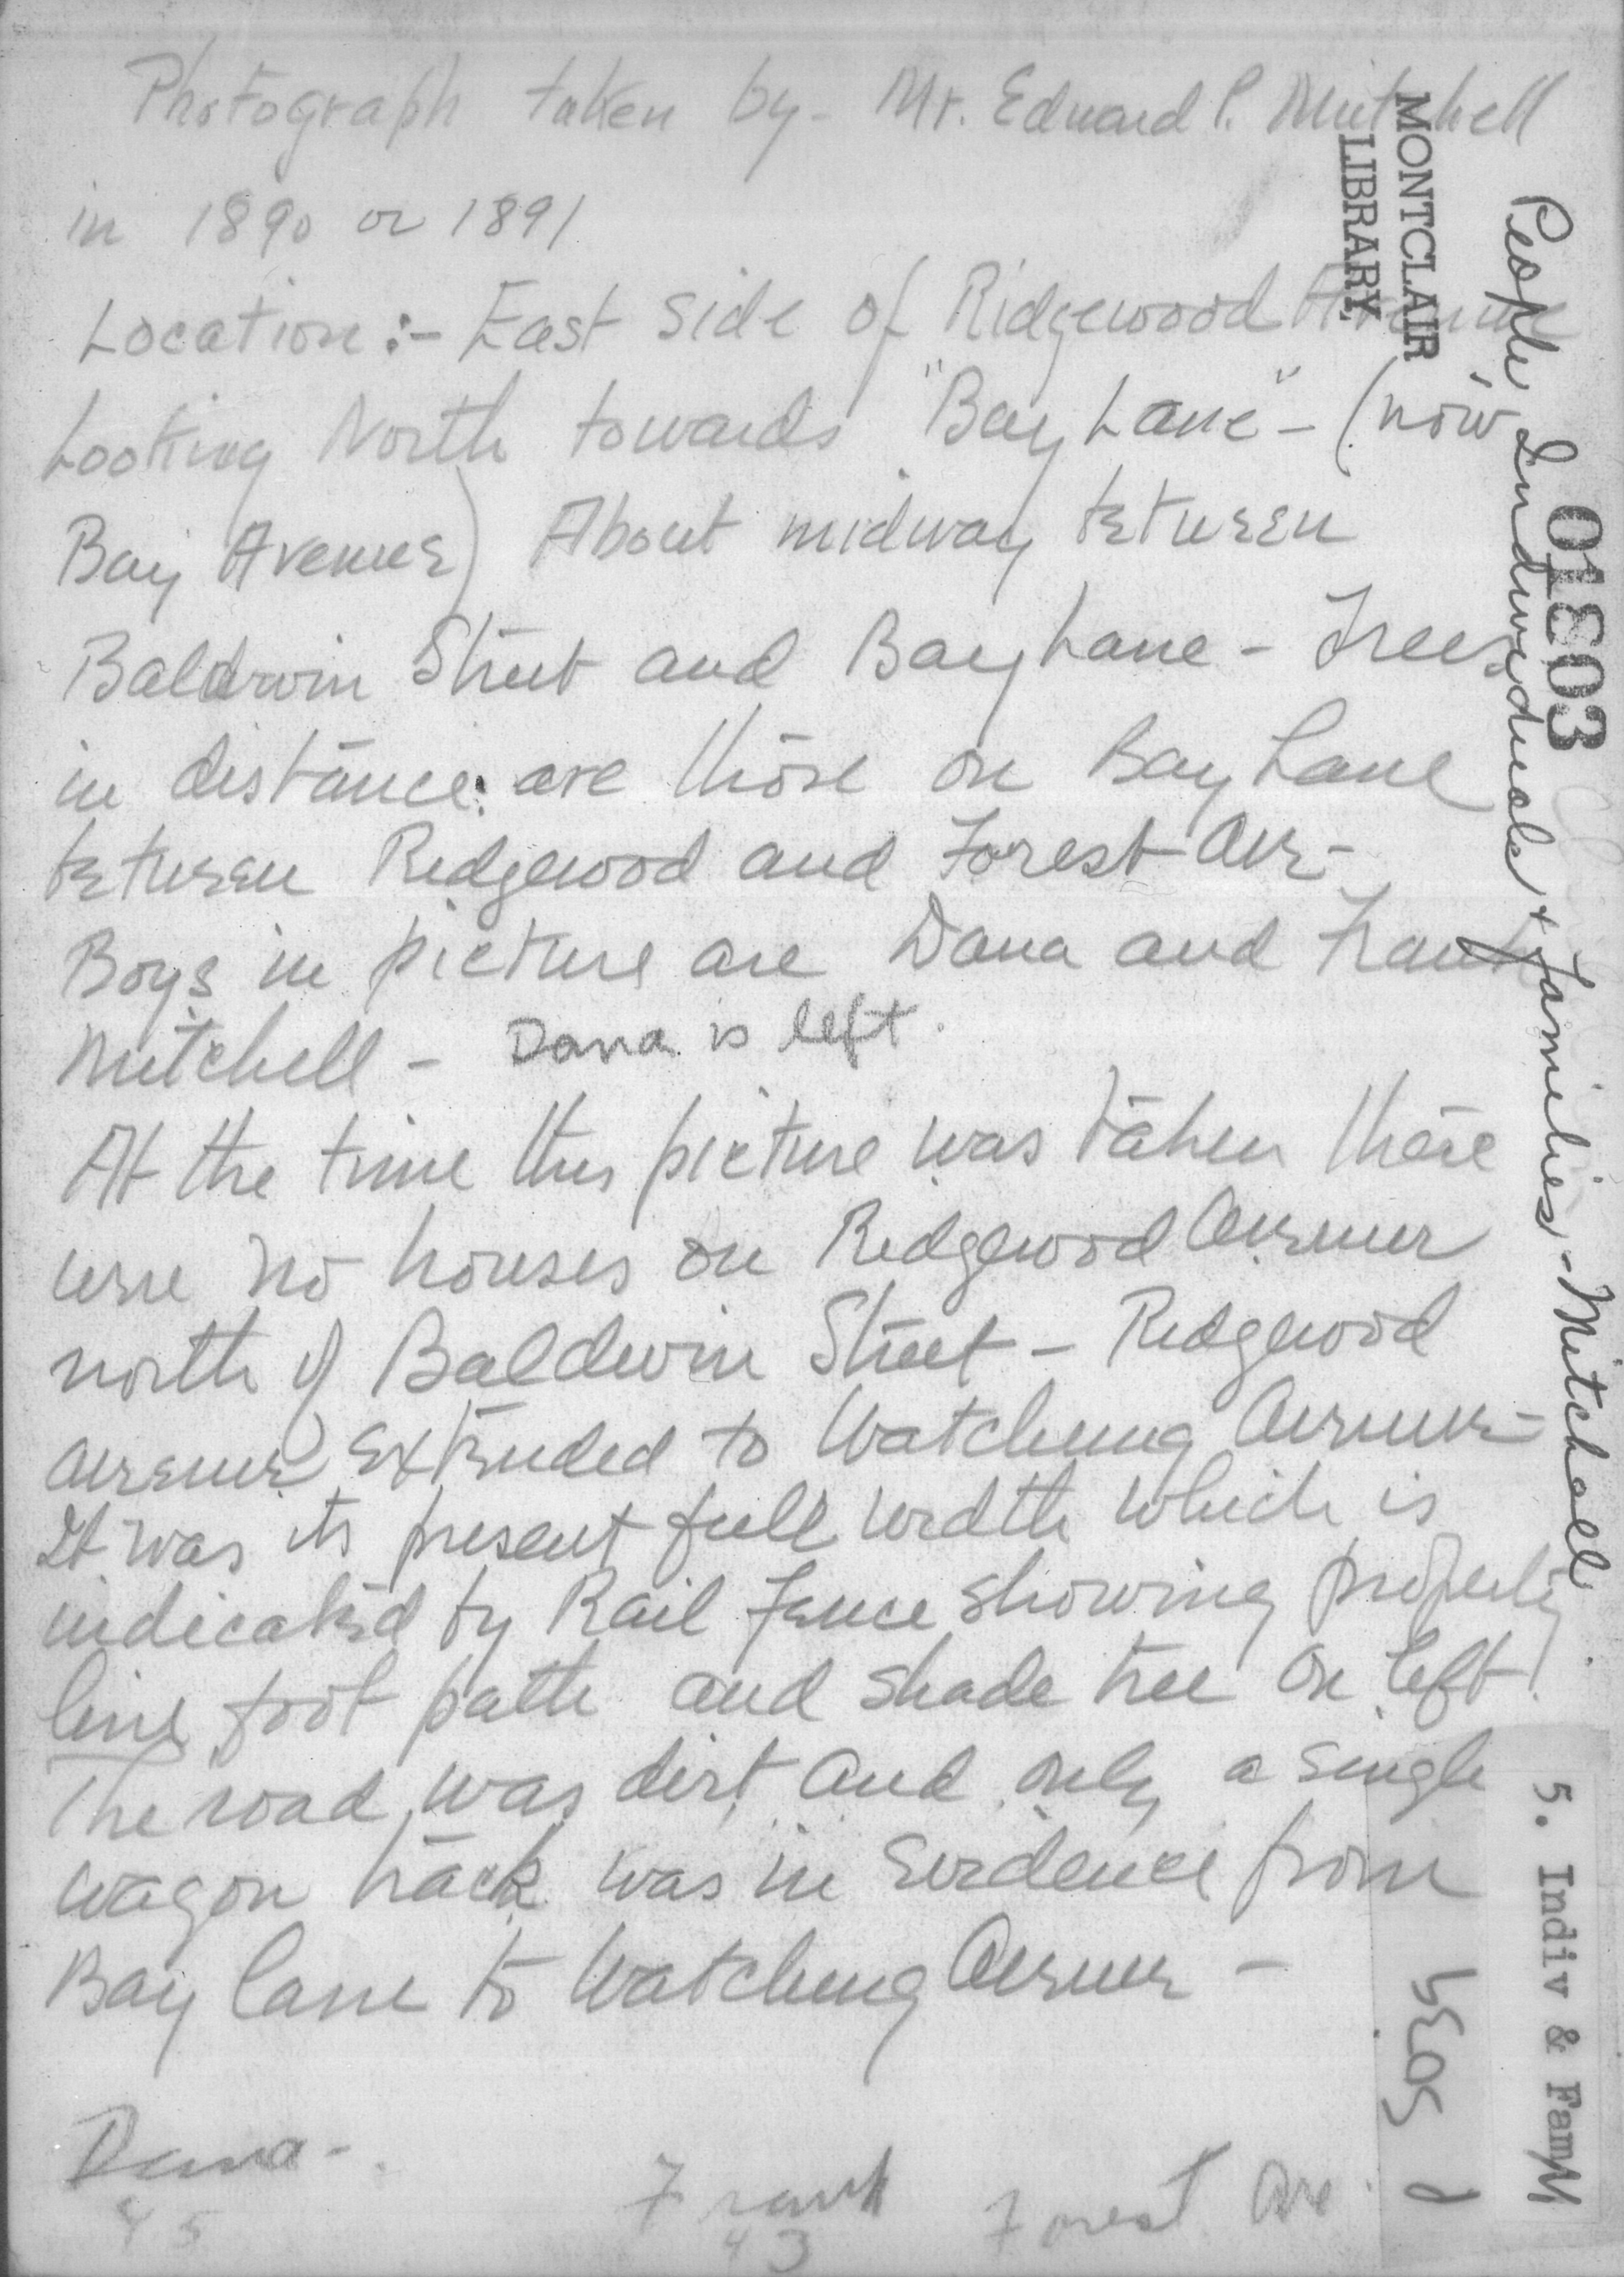 Photograph taken by - Mr. Edward P. Mitchell
in 1890 or 1891
Location :- East side of Ridgewood Avenue
Looking North towards "Bay Lane" - (now
Bay Avenue) About midway between
Baldwin Street and Bay Lane - Trees
in distance are those on Bay Lane
between Ridgewood and Forest Ave -
Boys in picture are Dana and Frank
Mitchell - Dana is left.
At the time this picture was taken there
were no houses on Ridgewood Avenue
north of Baldwin Street - Ridgewood
Avenue Extended to Watchung Avenue -
It was its present full width which is
indicated by Rail Fence showing property
line foot path and shade tree on left.
The road was dirt and only a single
wagon track was in Evidence from
Bay Lane to Watchung Avenue -
Dana -
45
Frank
43
Forest Ave.
MONTCLAIR
LIBRARY.
01803
People, Individuals & Families - Mitchell.
5. Indiv & Fam M
5035